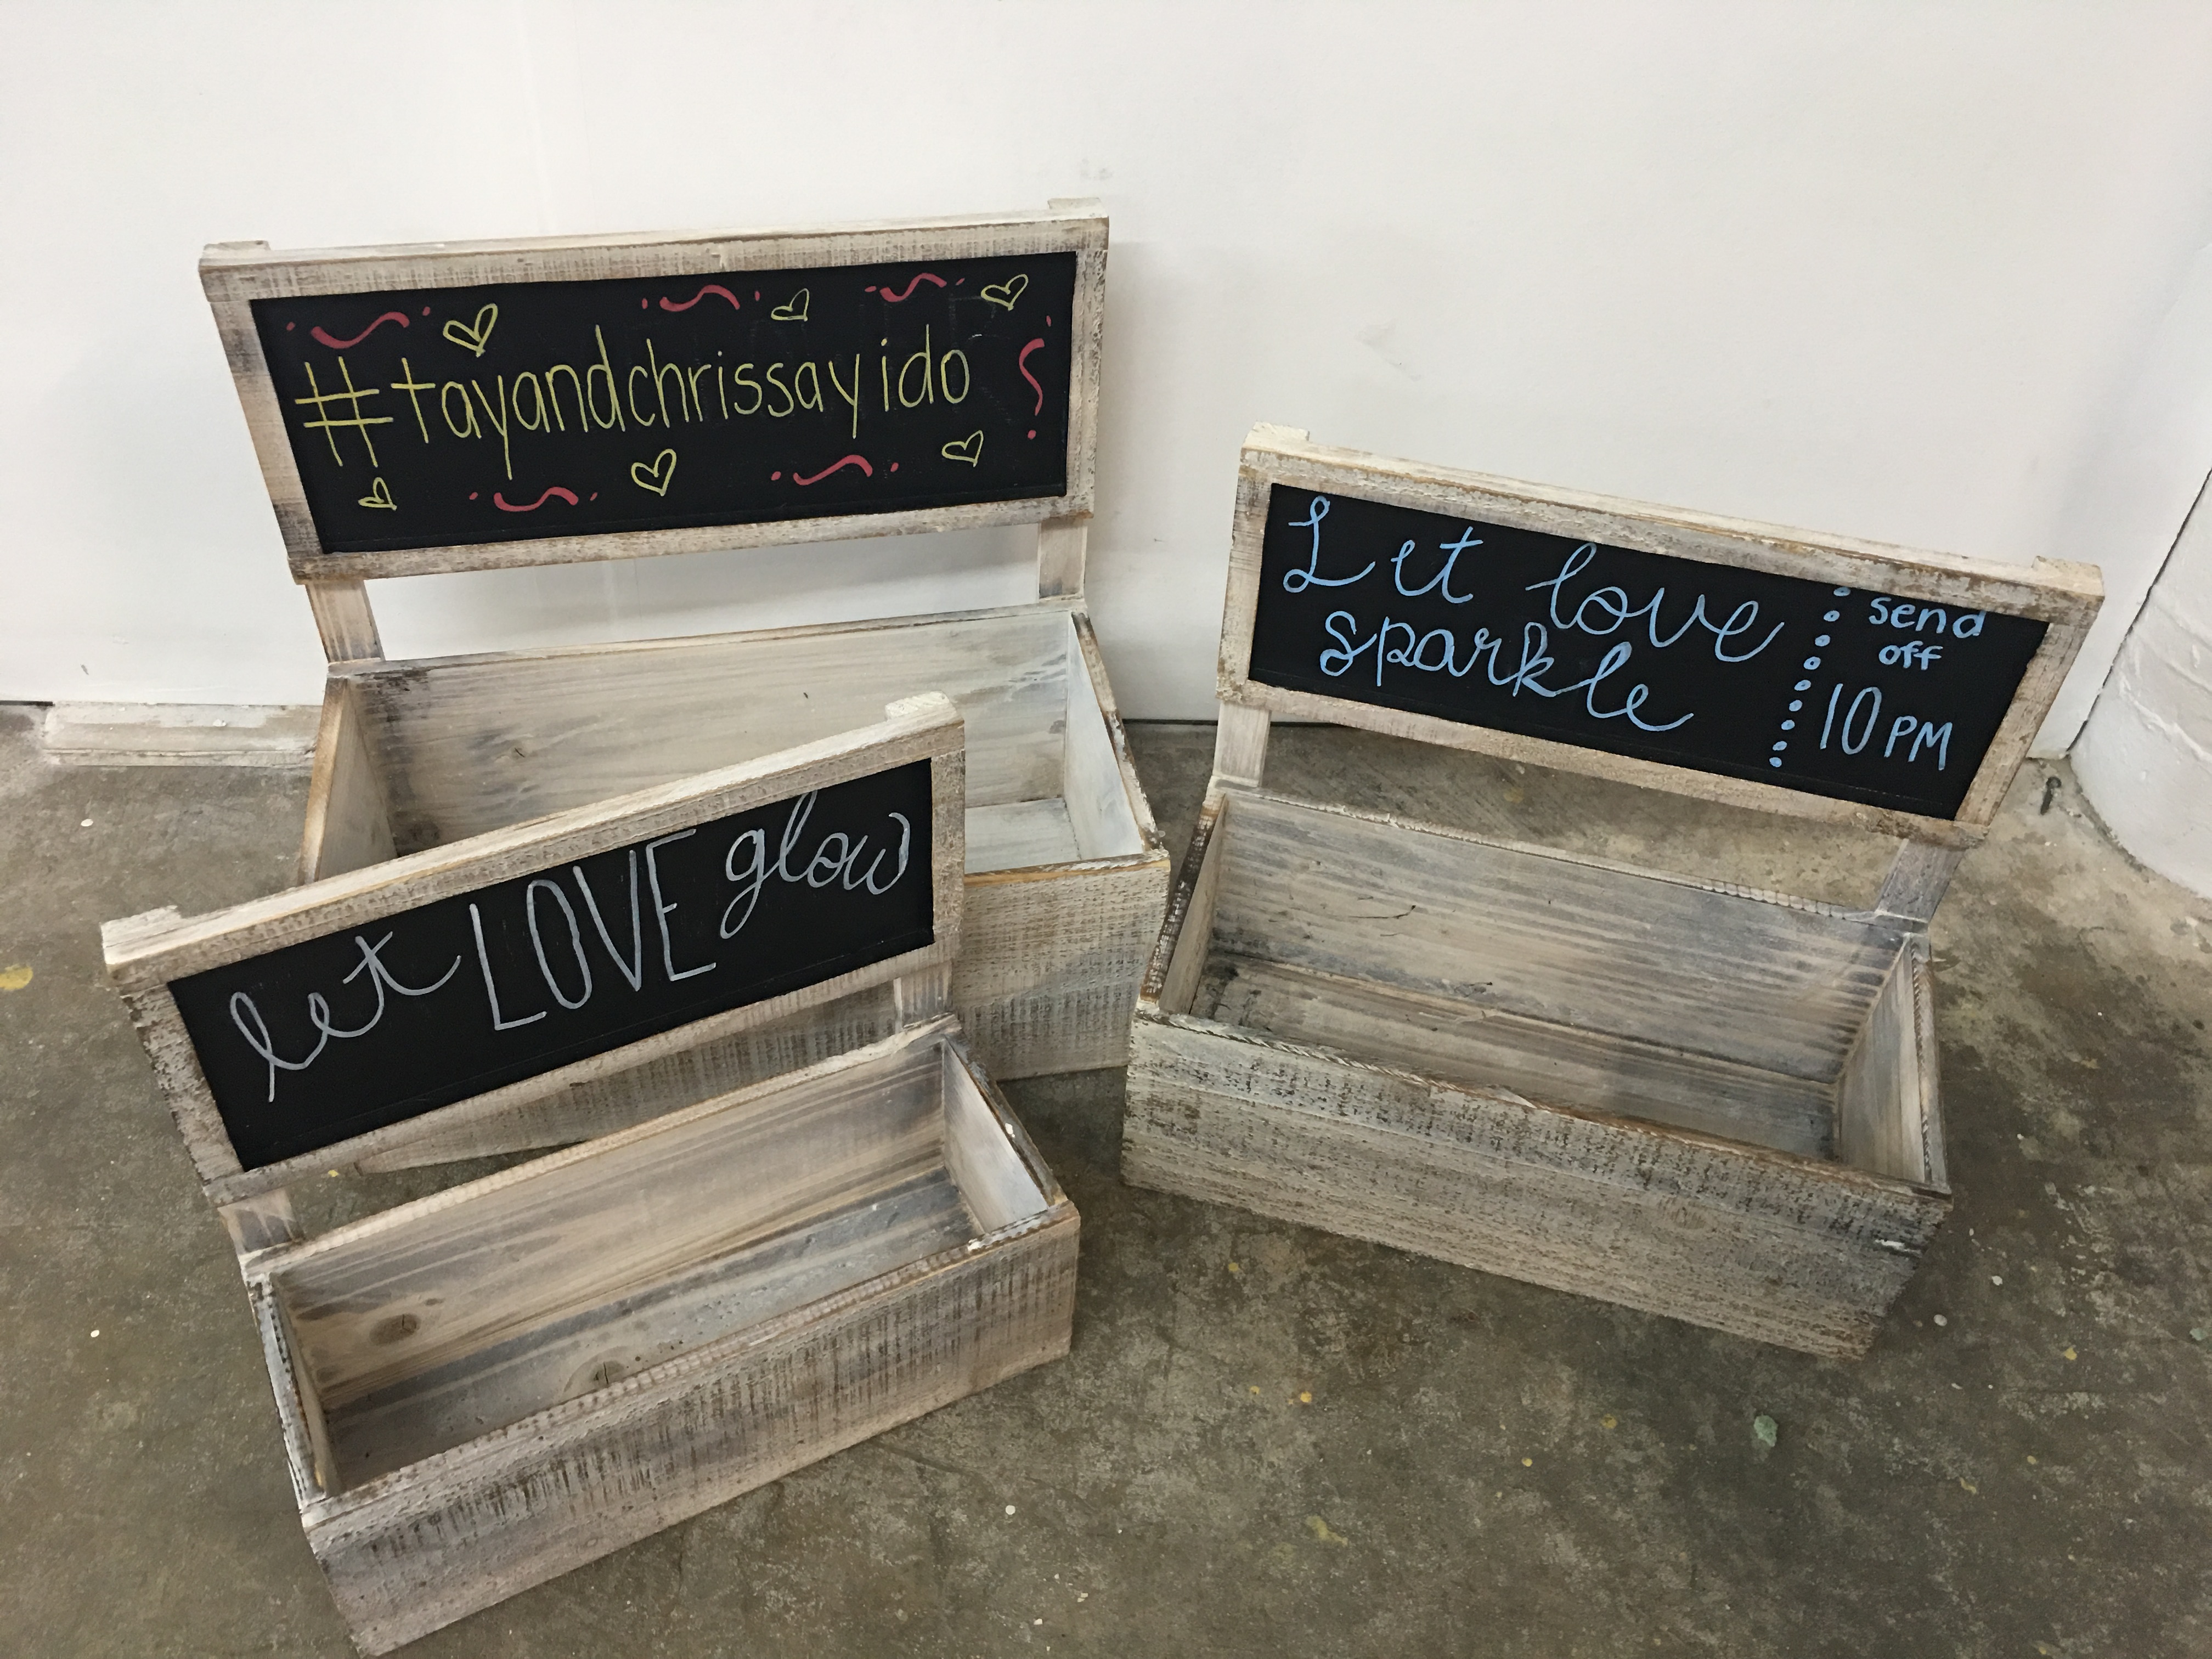 #tayandchrissayido
Let love
sparkle
send
off
10 PM
let LOVE glow